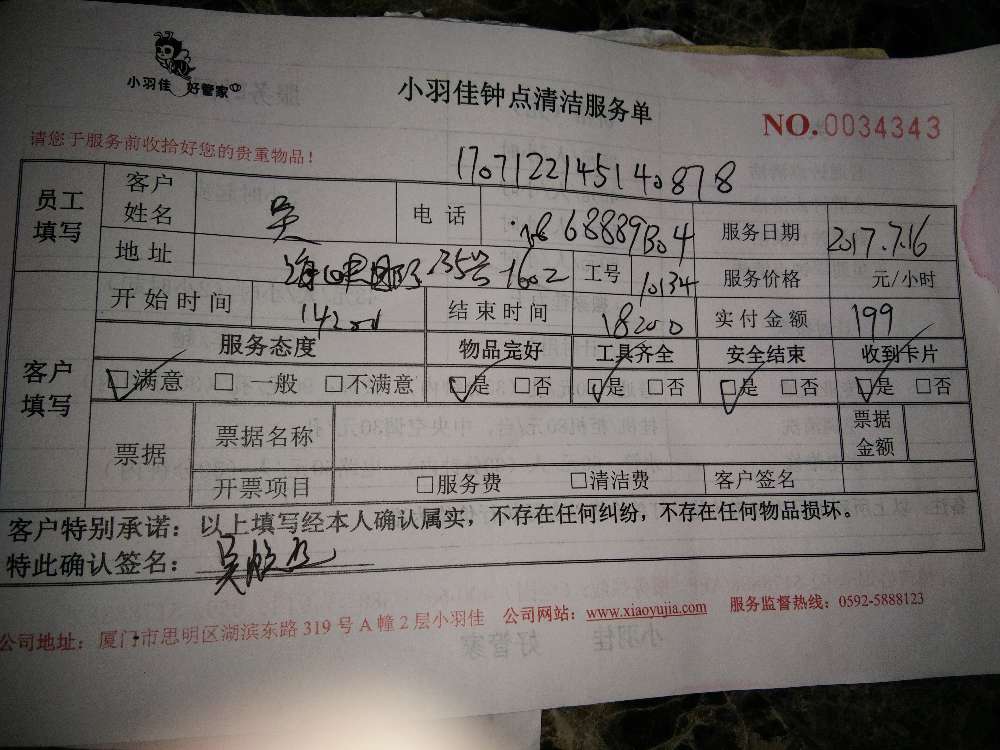 小羽佳 好管家
小羽佳钟点清洁服务单
NO.0034343
请您于服务前收拾好您的贵重物品！
1707122145140878
员工填写 客户姓名 吴 电话 服务日期 2017.7.16
地址 35号1602 工号 10134 服务价格 元/小时
开始时间 结束时间 实付金额 199
客户填写 服务态度 物品完好 工具齐全 安全结束 收到卡片
□满意 □一般 □不满意 □是 □否 □是 □否 □是 □否 □是 □否
票据 票据名称 票据金额
开票项目 □服务费 □清洁费 客户签名
客户特别承诺：以上填写经本人确认属实，不存在任何纠纷，不存在任何物品损坏。
特此确认签名：吴
公司地址：厦门市思明区湖滨东路319号A幢2层小羽佳 公司网站：www.xiaoyujia.com 服务监督热线：0592-5888123